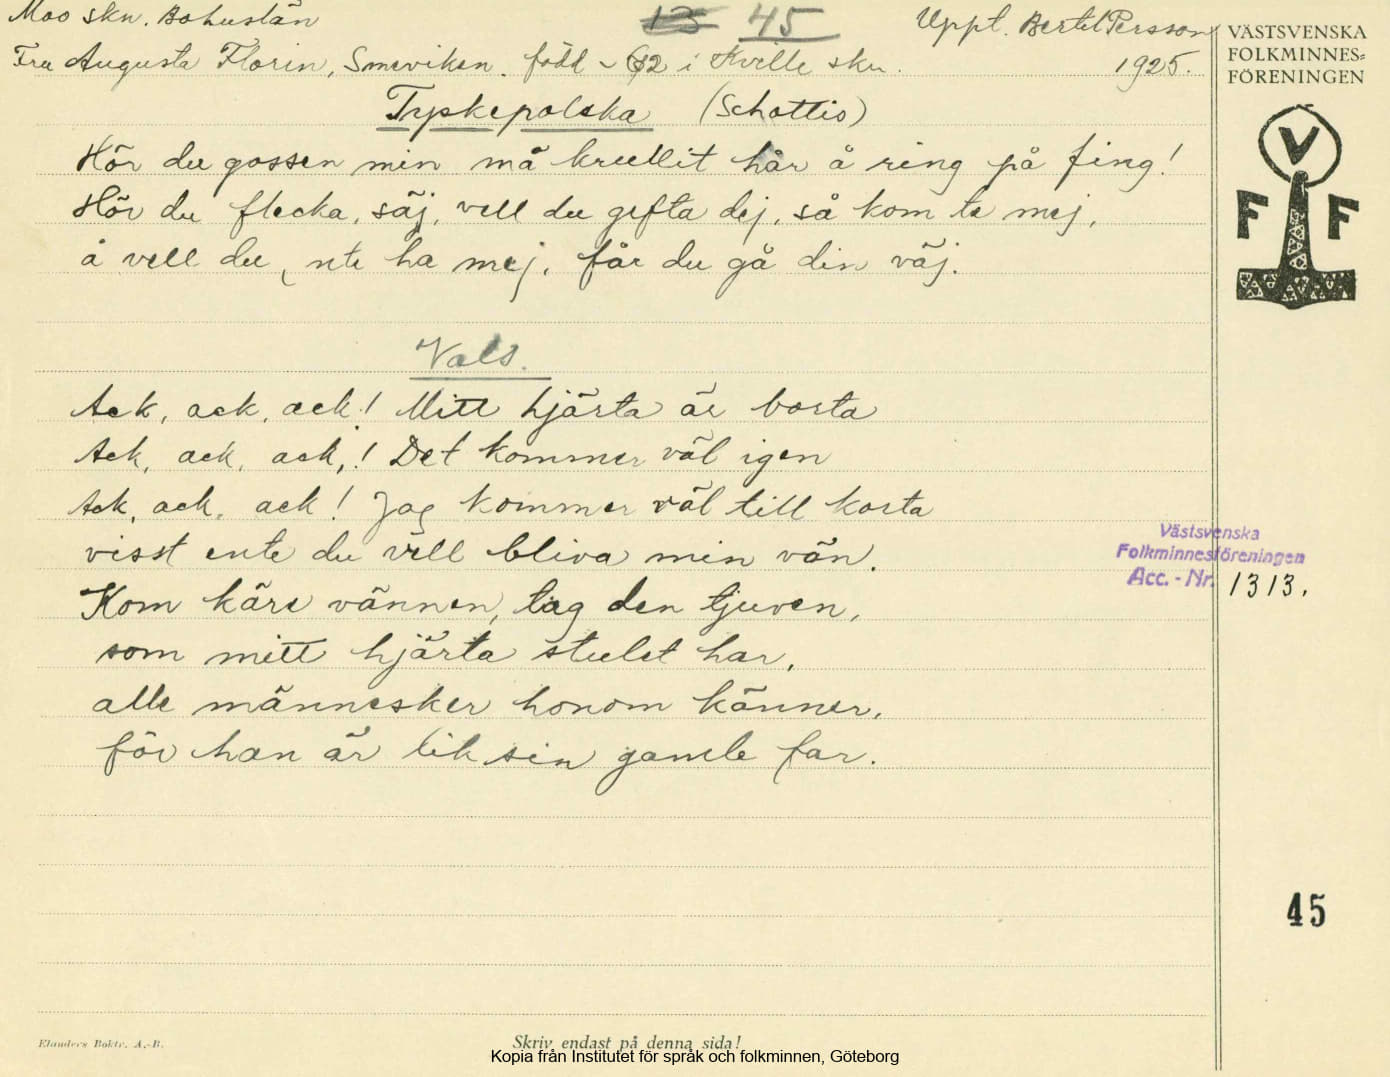 Moo skn. Bohuslän
13 45
Uppt. Bertel Persson
1925.
Fru Augusta Florin, Smeviken. född -62 i Kville skn.
Tyskepolska (Schottis)
Hör du gossen min må krullit hår å ring på fing!
Hör du flecka, säj, vell du gefta dej, så kom te mej,
å vell du nte ha mej, får du gå din väj.
Vals.
Ack, ack, ack! Mitt hjärta är borta
Ack, ack, ack,! Det kommer väl igen
Ack, ack, ack! Jag kommer väl till korta
visst ente du vill bliva min vän.
Kom käre vännen, tag den tjuven,
som mitt hjärta stulet har,
alle männesker honom känner,
för han är lik sin gamle far.
VÄSTSVENSKA
FOLKMINNES=
FÖRENINGEN
V
F F
Västsvenska
Folkminnesföreningen
Acc. - Nr. 1313.
45
Elanders Boktr. A.-B.
Skriv endast på denna sida!
Kopia från Institutet för språk och folkminnen, Göteborg